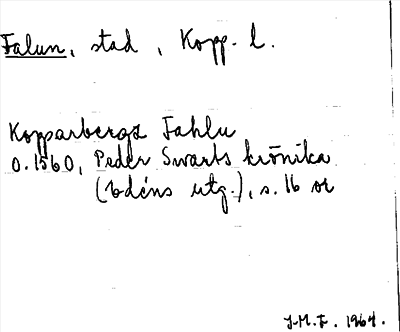 Falun, stad, Kopp. l.
Kopparbergz Fahlu
o. 1560, Peder Swarts krönika
(Edéns utg.), s. 16 or
J.M.F. 1964.